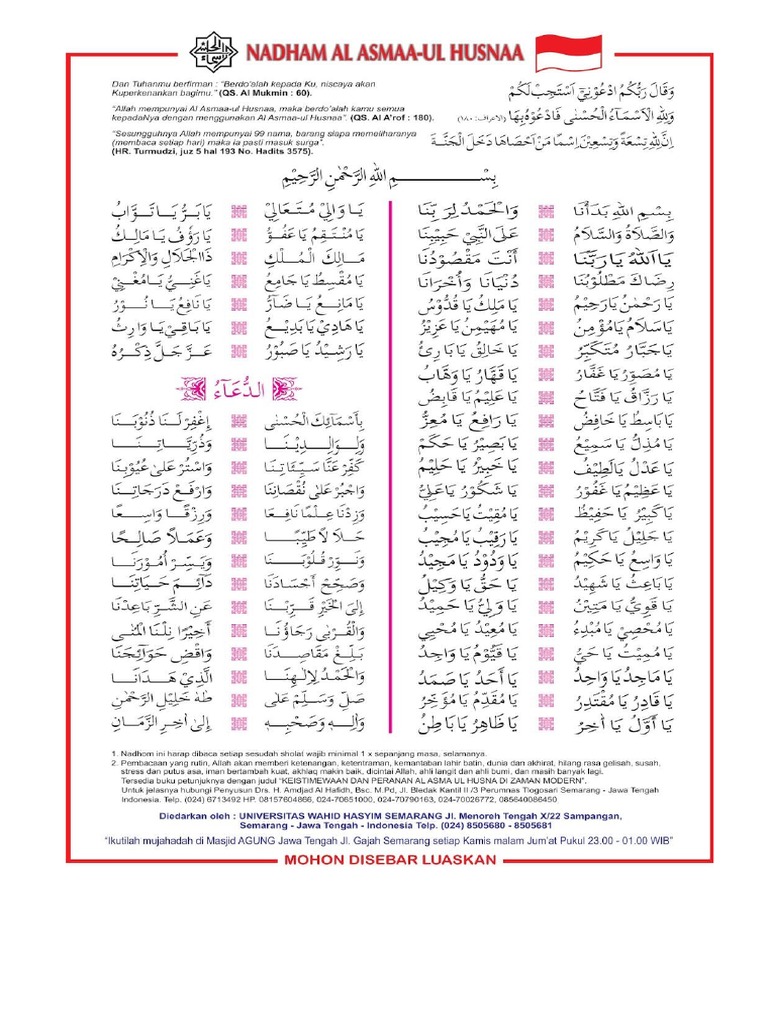 NADHAM AL ASMAA-UL HUSNAA
Dan Tuhanmu berfirman : “Berdo'alah kepada Ku, niscaya akan
Kuperkenankan bagimu.” (QS. Al Mukmin : 60).
وَقَالَ رَبُّكُمُ ادْعُوْنِيْٓ اَسْتَجِبْ لَكُمْ
“Allah mempunyai Al Asmaa-ul Husnaa, maka berdo'alah kamu semua
kepadaNya dengan menggunakan Al Asmaa-ul Husnaa”. (QS. Al A'rof : 180).
وَلِلّٰهِ الْاَسْمَآءُ الْحُسْنٰى فَادْعُوْهُ بِهَا (الاعراف: ١٨٠)
“Sesungguhnya Allah mempunyai 99 nama, barang siapa memeliharanya
(membaca setiap hari) maka ia pasti masuk surga”.
(HR. Turmudzi, juz 5 hal 193 No. Hadits 3575).
اِنَّ لِلّٰهِ تِسْعَةً وَتِسْعِيْنَ اِسْمًا مَنْ اَحْصَاهَا دَخَلَ الْجَنَّةَ
بِسْـــمِ اللهِ الرَّحْمٰنِ الرَّحِيْمِ
بِسْمِ اللهِ بَدَأْنَا وَالْحَمْدُ لِرَبِّنَا
وَالصَّلَاةُ وَالسَّلَامُ عَلَى النَّبِيْ حَبِيْبِنَا
يَا اَللهُ يَا رَبَّنَا أَنْتَ مَقْصُوْدُنَا
رِضَاكَ مَطْلُوْبُنَا دُنْيَانَا وَأُخْرَانَا
يَا رَحْمٰنُ يَا رَحِيْمُ يَا مَلِكُ يَا قُدُّوْسُ
يَا سَلَامُ يَا مُؤْمِنُ يَا مُهَيْمِنُ يَا عَزِيْزُ
يَا جَبَّارُ مُتَكَبِّرُ يَا خَالِقُ يَا بَارِئُ
يَا مُصَوِّرُ يَا غَفَّارُ يَا قَهَّارُ يَا وَهَّابُ
يَا رَزَّاقُ يَا فَتَّاحُ يَا عَلِيْمُ يَا قَابِضُ
يَا بَاسِطُ يَا خَافِضُ يَا رَافِعُ يَا مُعِزُّ
يَا مُذِلُّ يَا سَمِيْعُ يَا بَصِيْرُ يَا حَكَمُ
يَا عَدْلُ يَا لَطِيْفُ يَا خَبِيْرُ يَا حَلِيْمُ
يَا عَظِيْمُ يَا غَفُوْرُ يَا شَكُوْرُ يَا عَلِيُّ
يَا كَبِيْرُ يَا حَفِيْظُ يَا مُقِيْتُ يَا حَسِيْبُ
يَا جَلِيْلُ يَا كَرِيْمُ يَا رَقِيْبُ يَا مُجِيْبُ
يَا وَاسِعُ يَا حَكِيْمُ يَا وَدُوْدُ يَا مَجِيْدُ
يَا بَاعِثُ يَا شَهِيْدُ يَا حَقُّ يَا وَكِيْلُ
يَا قَوِيُّ يَا مَتِيْنُ يَا وَلِيُّ يَا حَمِيْدُ
يَا مُحْصِيْ يَا مُبْدِءُ يَا مُعِيْدُ يَا مُحْيِيْ
يَا مُمِيْتُ يَا حَيُّ يَا قَيُّوْمُ يَا وَاجِدُ
يَا مَاجِدُ يَا وَاحِدُ يَا أَحَدُ يَا صَمَدُ
يَا قَادِرُ يَا مُقْتَدِرُ يَا مُقَدِّمُ يَا مُؤَخِّرُ
يَا أَوَّلُ يَا اٰخِرُ يَا ظَاهِرُ يَا بَاطِنُ
يَا وَالِيْ مُتَعَالِيْ يَا بَرُّ يَا تَوَّابُ
يَا مُنْتَقِمُ يَا عَفُوُّ يَا رَؤُفُ يَا مَالِكُ
مَالِكَ الْمُلْكِ ذَاالْجَلَالِ وَالْاِكْرَامِ
يَا مُقْسِطُ يَا جَامِعُ يَا غَنِيُّ يَا مُغْنِيْ
يَا مَانِعُ يَا ضَآرُّ يَا نَافِعُ يَا نُوْرُ
يَا هَادِيْ يَا بَدِيْعُ يَا بَاقِيْ يَا وَارِثُ
يَا رَشِيْدُ يَا صَبُوْرُ عَزَّ جَلَّ ذِكْرُهُ
الدُّعَآءُ
بِأَسْمَائِكَ الْحُسْنٰى اِغْفِرْ لَنَا ذُنُوْبَنَا
وَلِوَالِدِيْنَا وَذُرِّيَّاتِنَا
كَفِّرْ عَنَّا سَيِّئَاتِنَا وَاسْتُرْ عَلٰى عُيُوْبِنَا
وَاجْبُرْ عَلٰى نُقْصَانِنَا وَارْفَعْ دَرَجَاتِنَا
وَزِدْنَا عِلْمًا نَافِعَا وَرِزْقًا وَاسِعًا
حَلَالًا طَيِّبًا وَعَمَلًا صَالِحًا
وَنَوِّرْ قُلُوْبَنَا وَيَسِّرْ أُمُوْرَنَا
وَصَحِّحْ أَجْسَادَنَا دَائِمَ حَيَاتِنَا
إِلَى الْخَيْرِ قَرِّبْنَا عَنِ الشَّرِّ بَاعِدْنَا
وَالْقُرْبٰى رَجَاؤُنَا أَخِيْرًا نِلْنَا الْمُنٰى
بَلِّغْ مَقَاصِدَنَا وَاقْضِ حَوَائِجَنَا
وَالْحَمْدُ لِاِلٰهِنَا الَّذِيْ هَدَانَا
صَلِّ وَسَلِّمْ عَلٰى طٰهٰ خَلِيْلِ الرَّحْمٰنِ
وَاٰلِهِ وَصَحْبِهِ إِلٰى اٰخِرِ الزَّمَانِ
1. Nadhom ini harap dibaca setiap sesudah sholat wajib minimal 1 x sepanjang masa, selamanya.
2. Pembacaan yang rutin, Allah akan memberi ketenangan, ketentraman, kemantaban lahir batin, dunia dan akhirat, hilang rasa gelisah, susah,
stress dan putus asa, iman bertambah kuat, akhlaq makin baik, dicintai Allah, ahli langit dan ahli bumi, dan masih banyak lagi.
Tersedia buku petunjuknya dengan judul “KEISTIMEWAAN DAN PERANAN AL ASMA UL HUSNA DI ZAMAN MODERN”.
Untuk jelasnya hubungi Penyusun Drs. H. Amdjad Al Hafidh, Bsc. M.Pd, Jl. Bledak Kantil II /3 Perumnas Tlogosari Semarang - Jawa Tengah
Indonesia. Telp. (024) 6713492 HP. 08157604866, 024-70651000, 024-70790163, 024-70026772, 085640086450
Diedarkan oleh : UNIVERSITAS WAHID HASYIM SEMARANG Jl. Menoreh Tengah X/22 Sampangan,
Semarang - Jawa Tengah - Indonesia Telp. (024) 8505680 - 8505681
“Ikutilah mujahadah di Masjid AGUNG Jawa Tengah Jl. Gajah Semarang setiap Kamis malam Jum'at Pukul 23.00 - 01.00 WIB”
MOHON DISEBAR LUASKAN